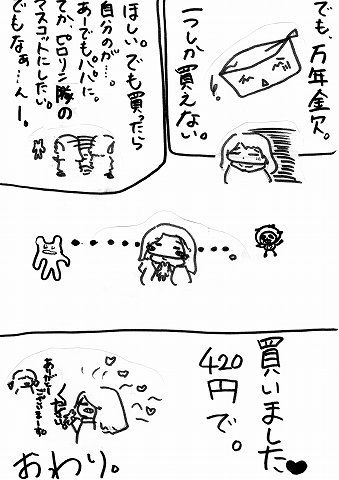 でも、万年金欠。
一つしか買えない。
ほしい。でも買ったら
自分のが…。
あーでもパパに。
てか、ピロリン隊の
マスコットにしたい。
でもなぁ…んー。
買いました♥
420円で。
ください
ありがとう
ございまーす
おわり。